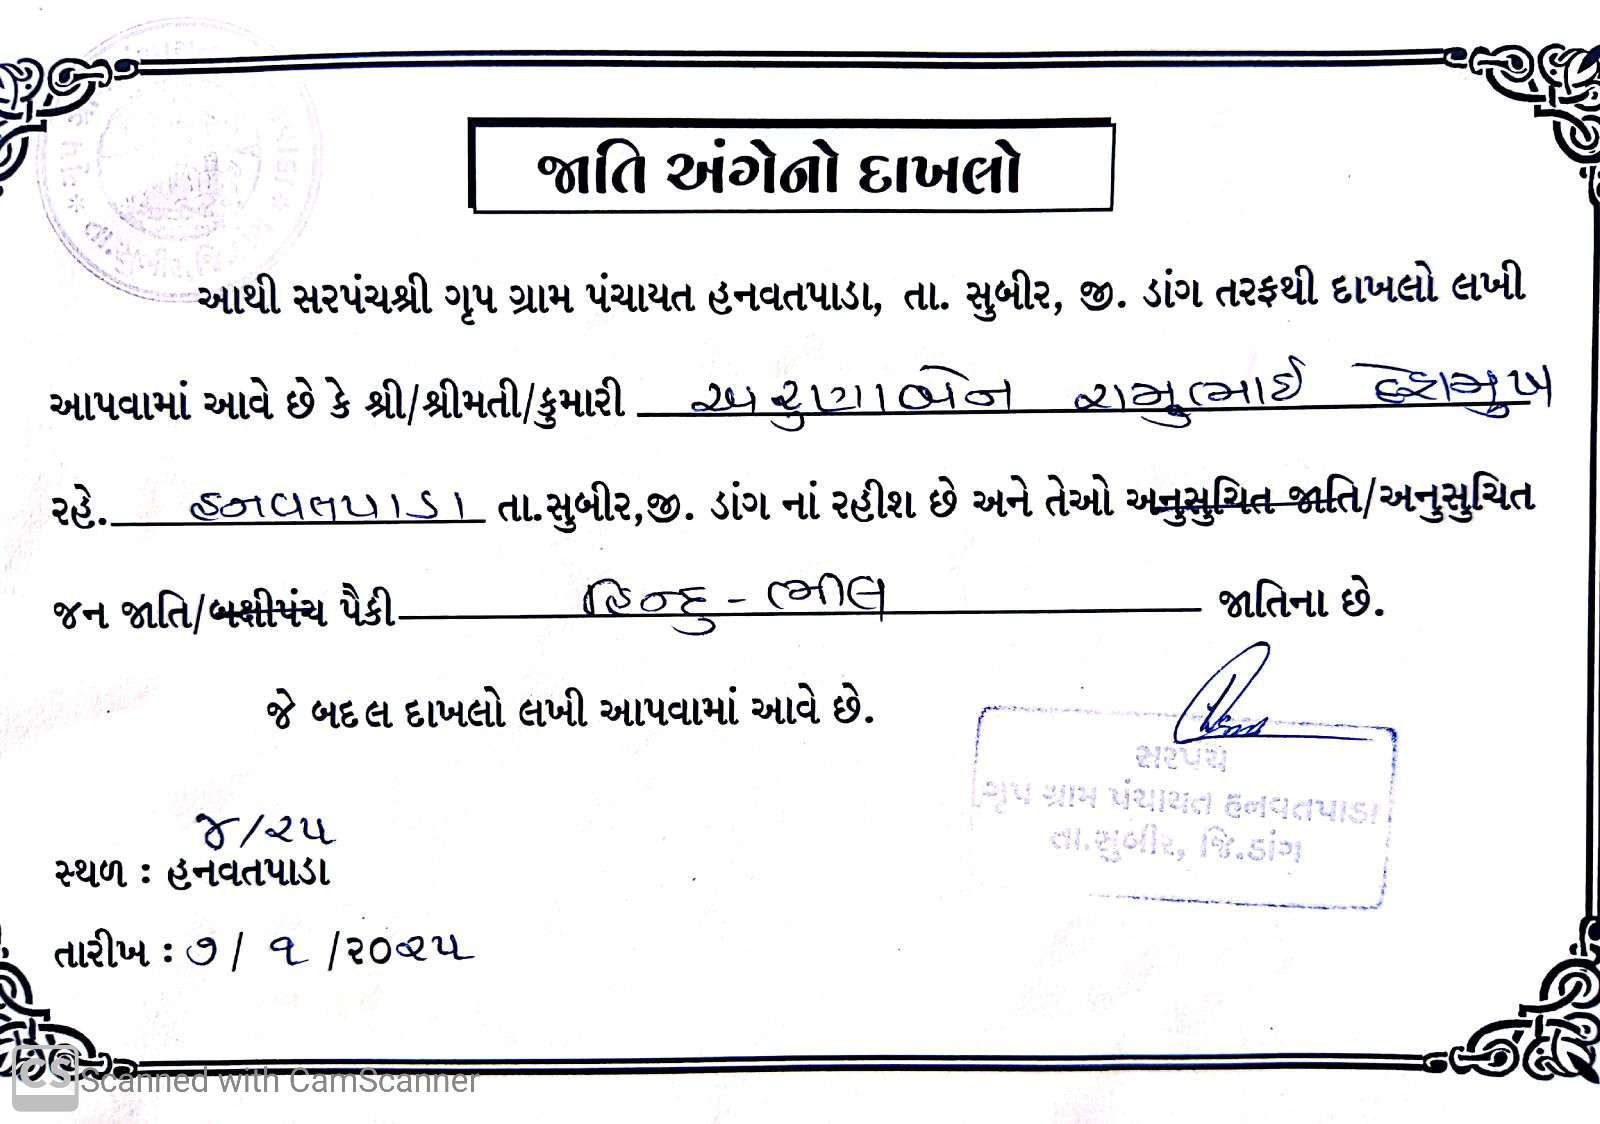 જાતિ અંગેનો દાખલો
આથી સરપંચશ્રી ગૃપ ગ્રામ પંચાયત હનવતપાડા, તા. સુબીર, જી. ડાંગ તરફથી દાખલો લખી
આપવામાં આવે છે કે શ્રી/શ્રીમતી/કુમારી અરુણાબેન રામુભાઈ દેશમુખ
રહે. હનવતપાડા તા.સુબીર,જી. ડાંગ નાં રહીશ છે અને તેઓ અનુસુચિત જાતિ/અનુસુચિત
જન જાતિ/બક્ષીપંચ પૈકી હિન્દુ - ભીલ જાતિના છે.
જે બદલ દાખલો લખી આપવામાં આવે છે.
સરપંચ
ગૃપ ગ્રામ પંચાયત હનવતપાડા
તા.સુબીર, જિ.ડાંગ
૪/૨૫
સ્થળ : હનવતપાડા
તારીખ : ૭/ ૧ /૨૦૨૫
તા.સુબીર, જિ.
CS Scanned with CamScanner